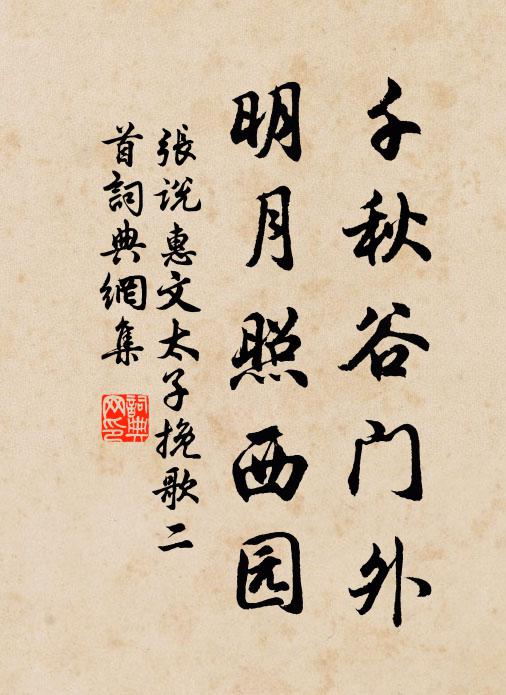 千秋谷门外
明月照西园
張説惠文太子挽歌二
首詞典網集
詞典
网印